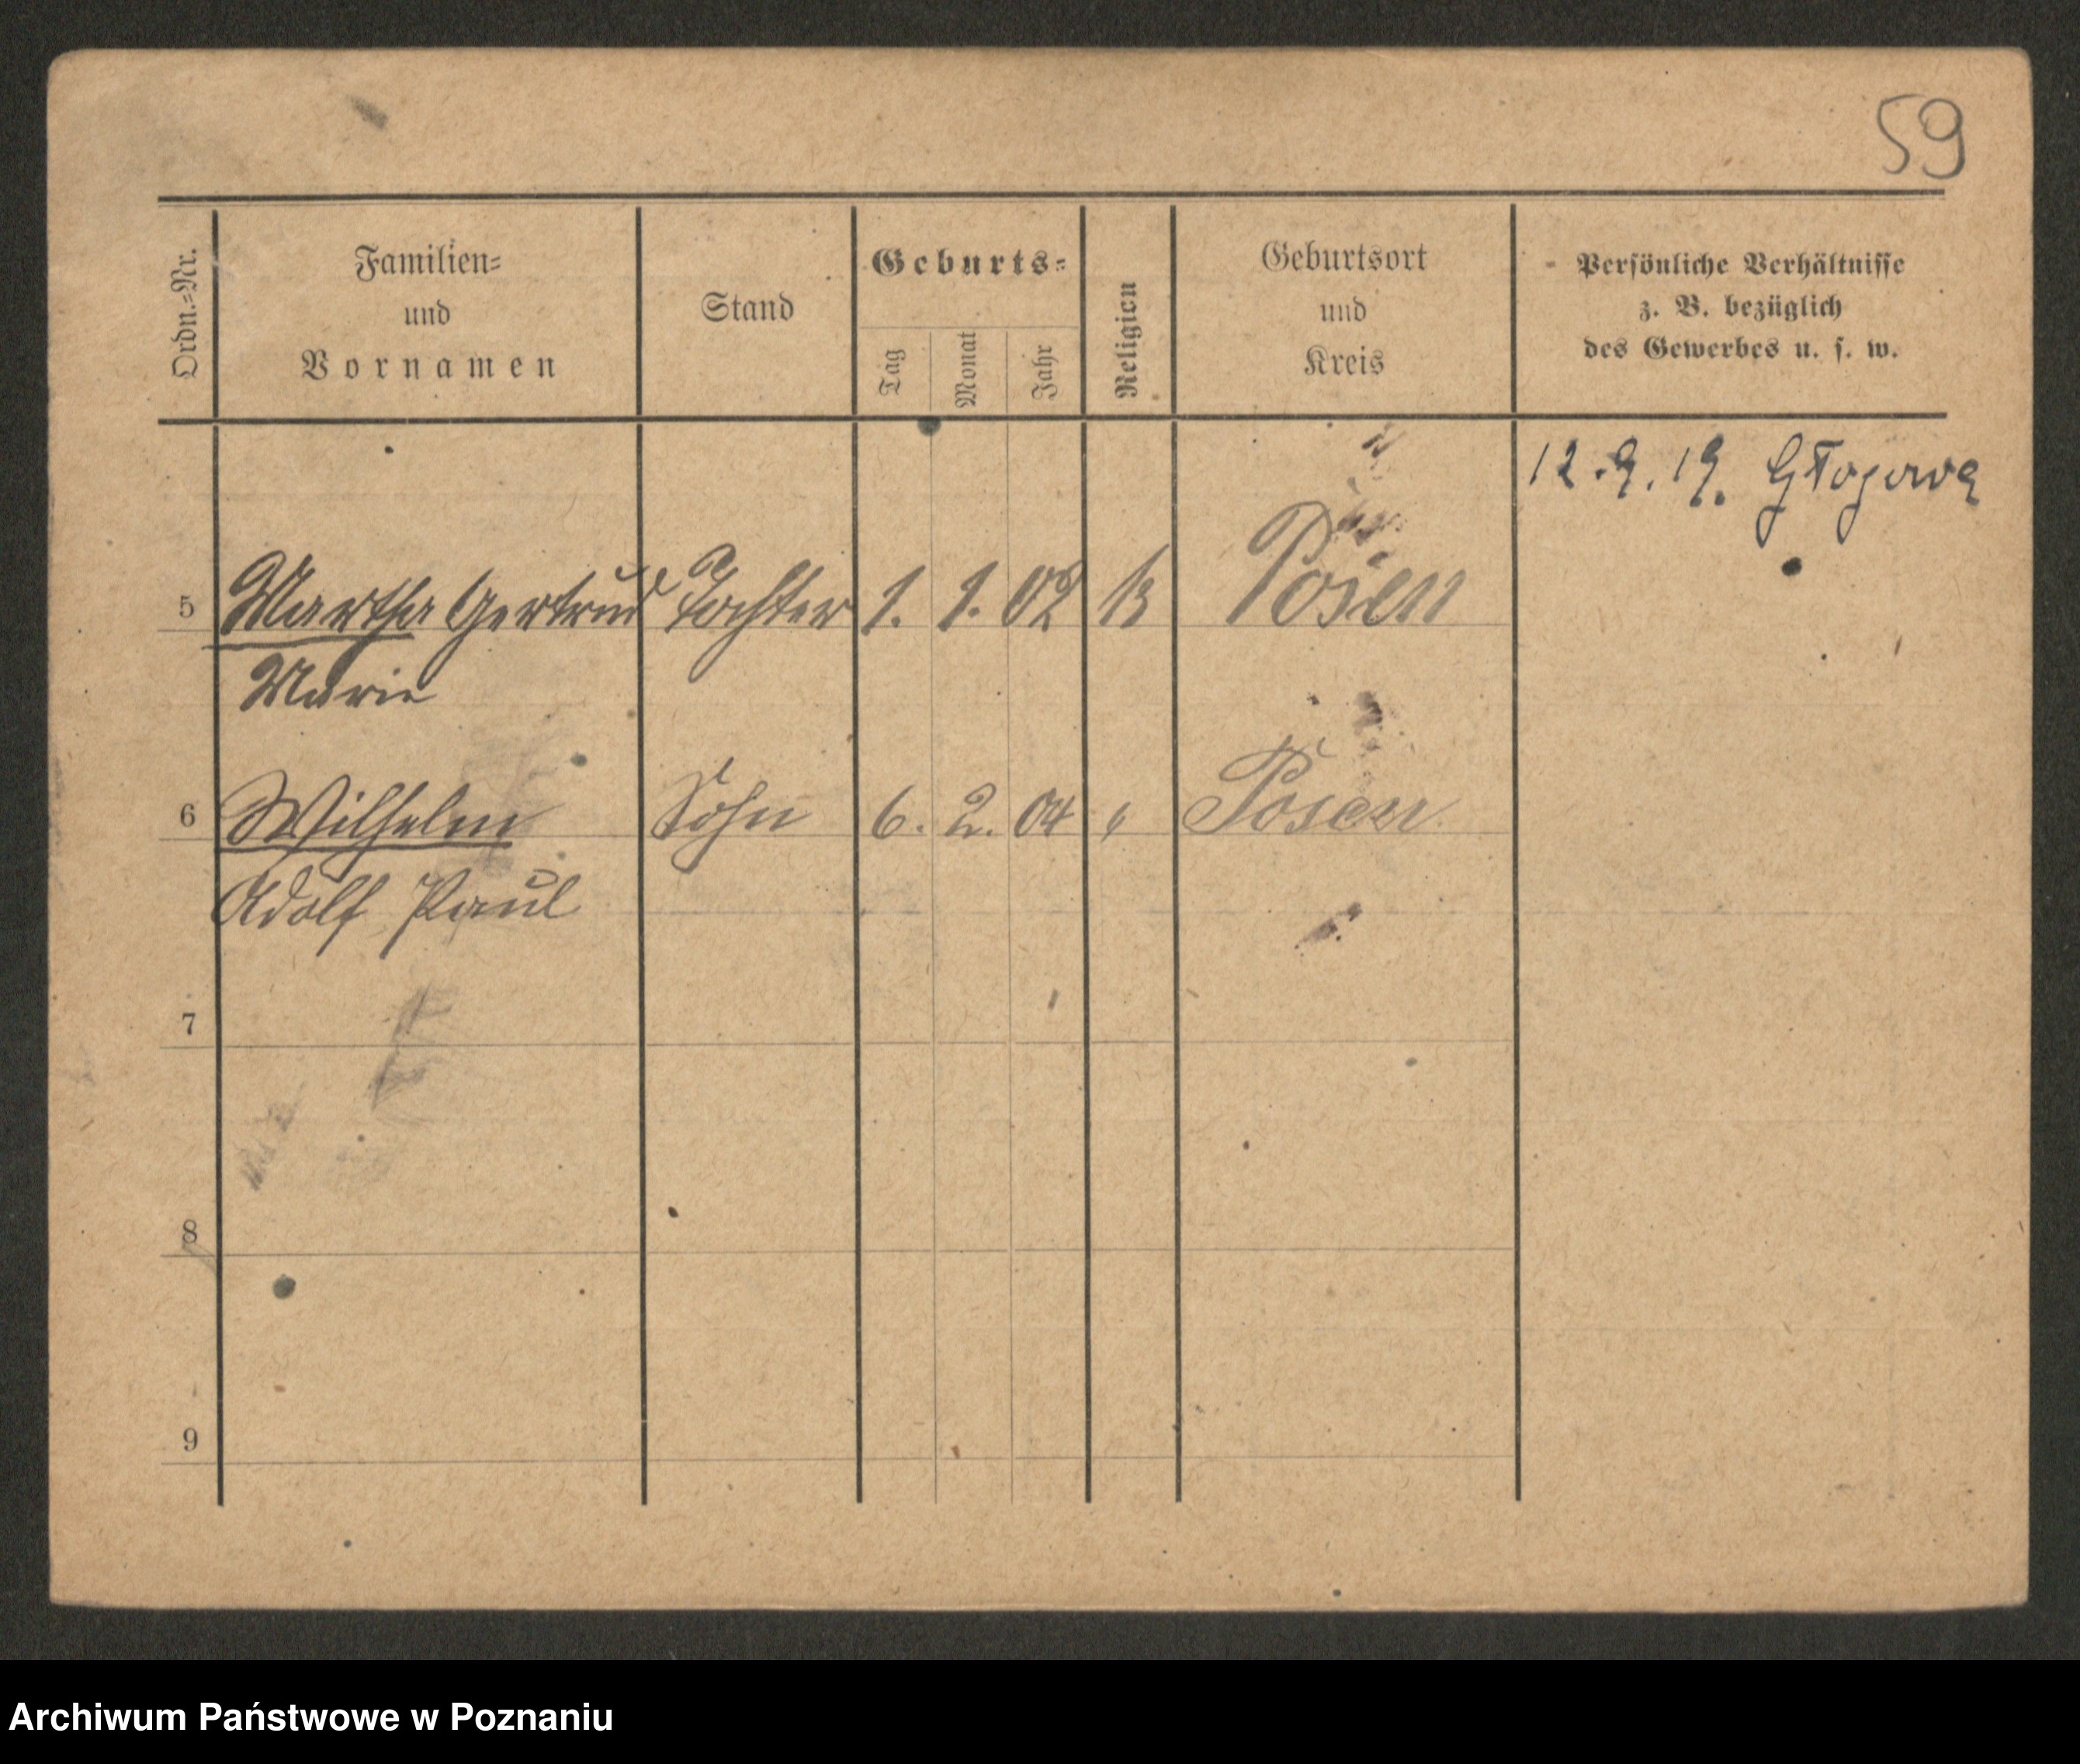 59
Ordn.-Nr.
Familien-
und
Vornamen
Stand
Geburts-
Tag
Monat
Jahr
Religion
Geburtsort
und
Kreis
Persönliche Verhältnisse
z. B. bezüglich
des Gewerbes u. s. w.
12.9.19. Głogowa
5 Martha Gertrud Tochter 1. 1. 02 Posen
Marie
6 Wilhelm Sohn 6. 2. 04 " Posen
Adolf Paul
7
8
9
Archiwum Państwowe w Poznaniu